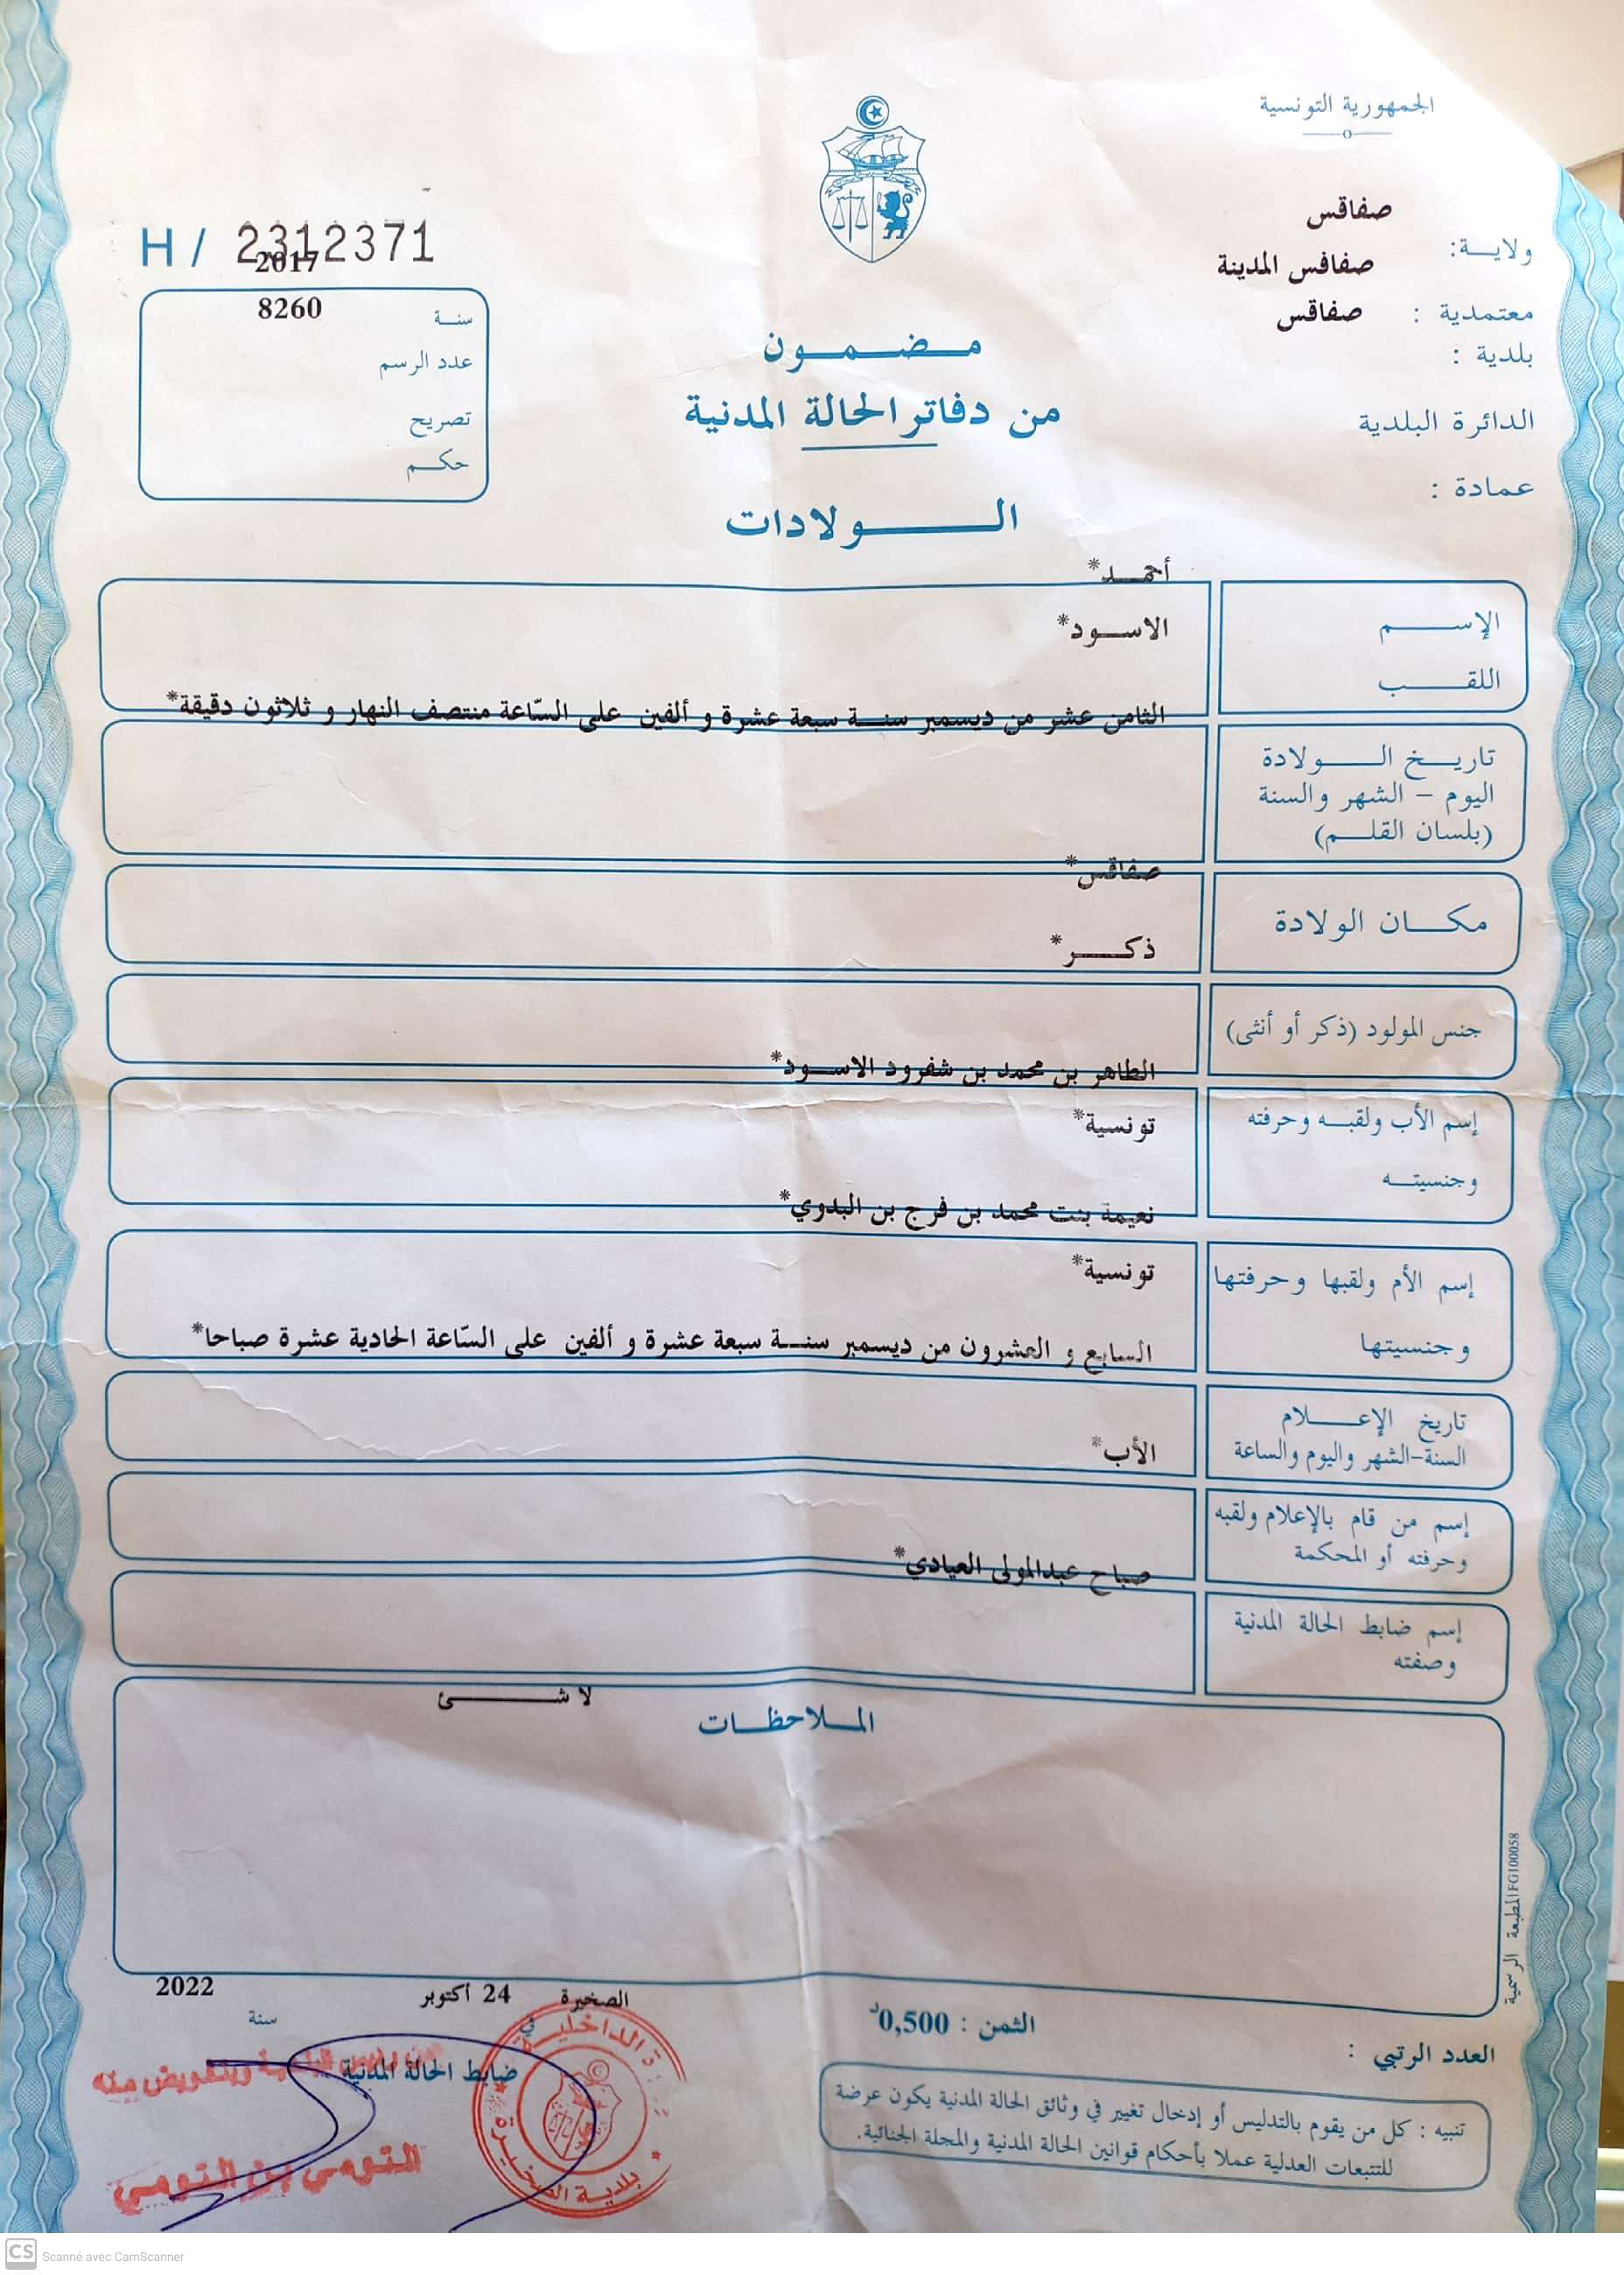 الجمهورية التونسية
صفاقس
ولايـــة:
صفاقس المدينة
معتمدية :
صفاقس
بلدية :
الدائرة البلدية
عمادة :
H / 2312371
2017
8260
سنــة
عدد الرسم
تصريح
حكــم
مـضـمـون
من دفاتر الحالة المدنية
الـــولادات
أحمـــد*
الإســـم
الاســـود*
اللقـــب
الثامن عشر من ديسمبر سنــة سبعة عشرة و ألفين على السّاعة منتصف النهار و ثلاثون دقيقة*
تاريـخ الـــولادة
اليوم – الشهر والسنة
(بلسان القلـــم)
صفاقس*
مكـــان الولادة
ذكـــر*
جنس المولود (ذكر أو أنثى)
الطاهر بن محمد بن شفرود الاســـود*
إسم الأب ولقبــه وحرفته
تونسية*
وجنسيتــه
نعيمة بنت محمد بن فرج بن البدوي*
إسم الأم ولقبها وحرفتها
تونسية*
وجنسيتها
السابع و العشرون من ديسمبر سنــة سبعة عشرة و ألفين على السّاعة الحادية عشرة صباحا*
تاريخ الإعـــلام
السنة–الشهر واليوم والساعة
الأب*
إسم من قام بالإعلام ولقبه
وحرفته أو المحكمة
صباح عبدالمولى العيادي*
إسم ضابط الحالة المدنية
وصفته
لا شـــئ
المـلاحظـات
المطبعة الرسمية IFG100058
الصخيرة
24 أكتوبر
2022
في
سنة
ضابط الحالة المدنية
وبتفويض منه
التومي بن التومي
الداخليـة
بلدية الصخيرة
الثمن : 0,500د
العدد الرتبي :
تنبيه : كل من يقوم بالتدليس أو إدخال تغيير في وثائق الحالة المدنية يكون عرضة
للتتبعات العدلية عملا بأحكام قوانين الحالة المدنية والمجلة الجنائية.
CS Scanné avec CamScanner